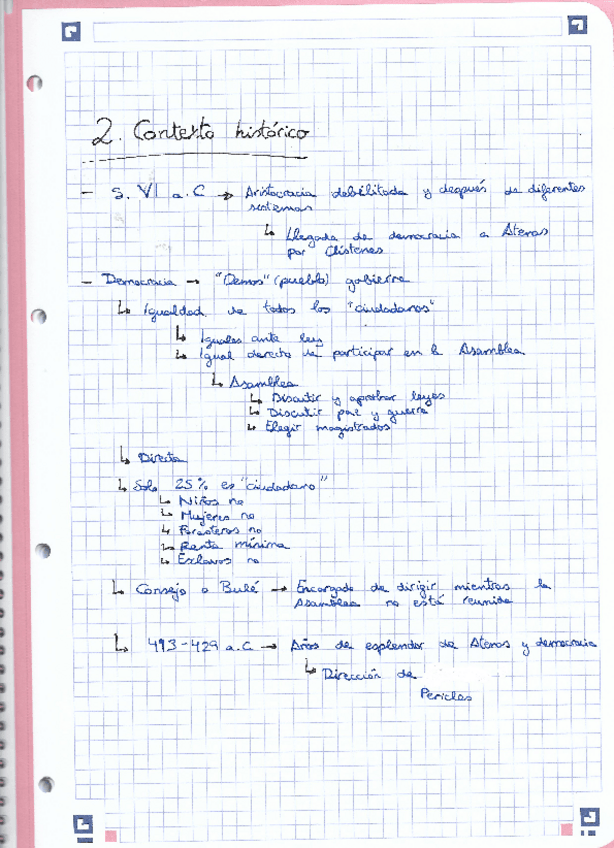 2. Contexto histórico
- S. VI a.C → Aristocracia debilitada y después de diferentes
sistemas
↳ Llegada de democracia a Atenas
por Clístenes
- Democracia → "Demos" (pueblo) gobierna
↳ Igualdad de todos los "ciudadanos"
↳ Iguales ante ley
↳ Igual derecho de participar en la Asamblea
↳ Asamblea
↳ Discutir y aprobar leyes
↳ Discutir paz y guerra
↳ Elegir magistrados
↳ Directa
↳ Solo 25% es "ciudadano"
↳ Niños no
↳ Mujeres no
↳ Forasteros no
↳ Renta mínima
↳ Esclavos no
↳ Consejo o Bulé → Encargado de dirigir mientras la
Asamblea no está reunida
↳ 493-429 a.C → Años de esplendor de Atenas y democracia
↳ Dirección de
Pericles